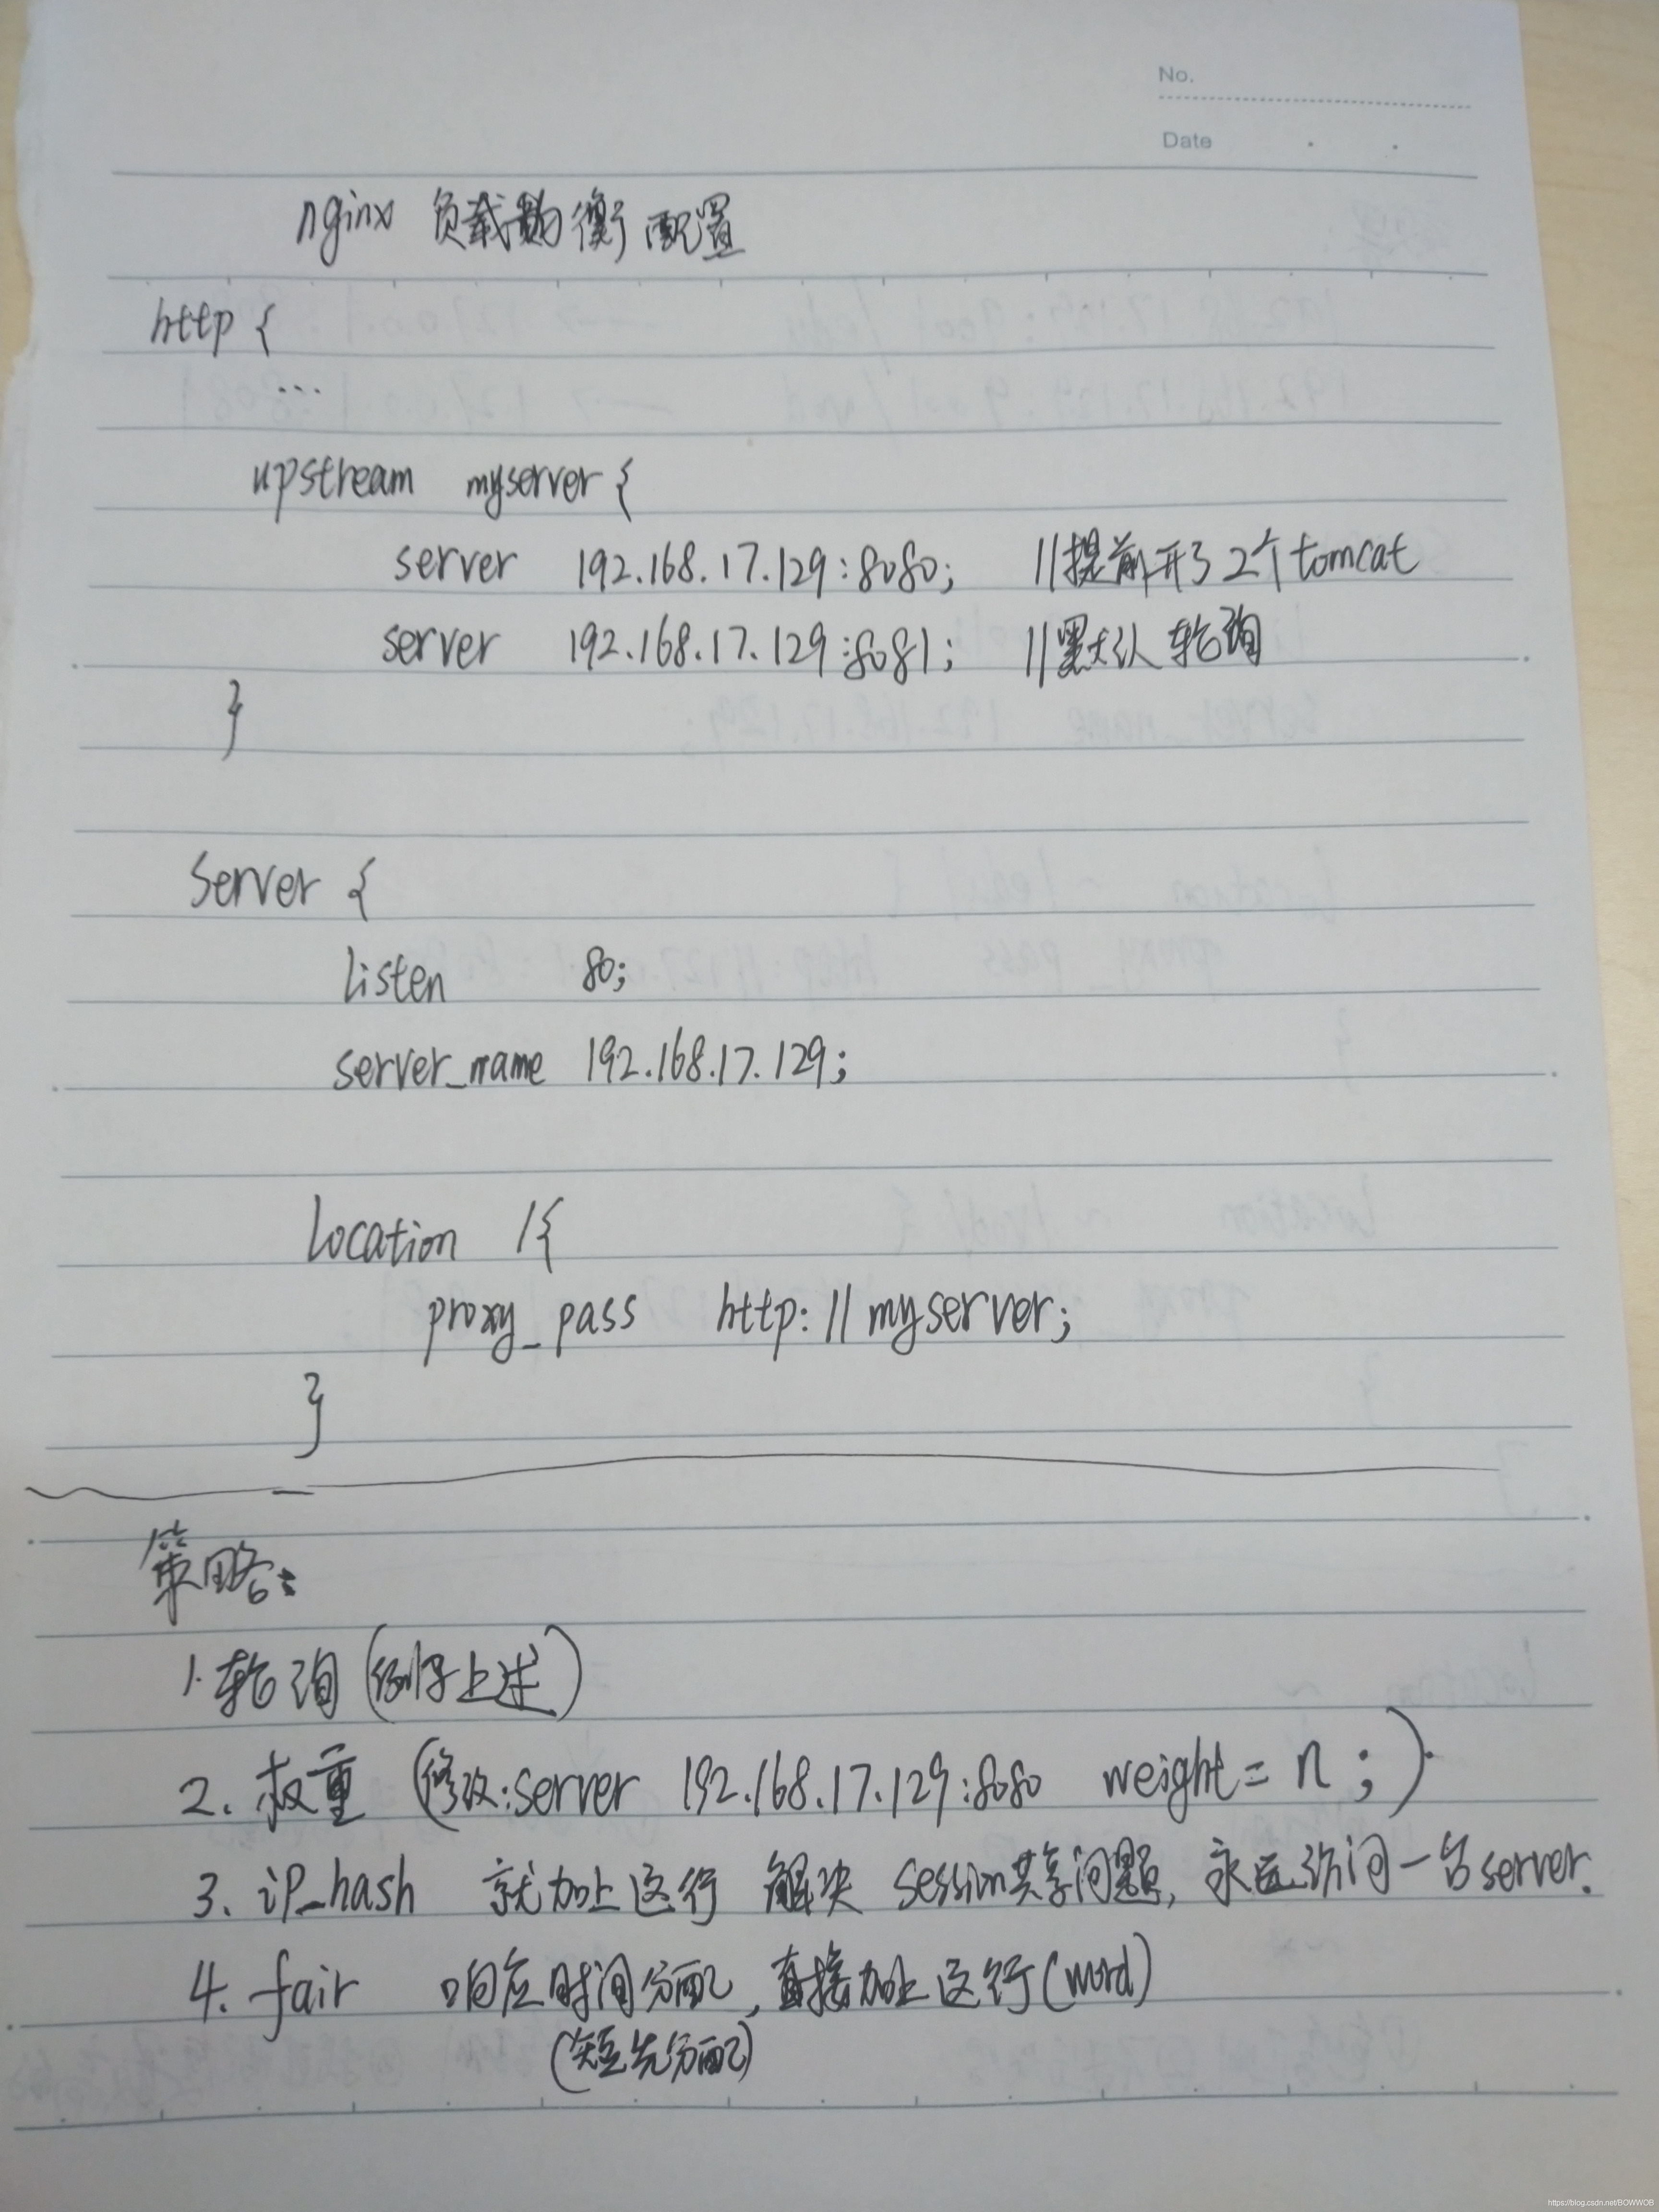 No.
Date
nginx 负载均衡配置
http {
...
upstream myserver {
server 192.168.17.129:8080; //提前开了2个tomcat
server 192.168.17.129:8081; //默认轮询
}
Server {
listen 80;
server_name 192.168.17.129;
location /{
proxy_pass http://myserver;
}
策略:
1.轮询(例子上述)
2.权重(修改:server 192.168.17.129:8080 weight=n;).
3.ip_hash 就加上这行 解决session共享问题,永远访问一台server.
4.fair 响应时间分配,直接加上这行(word)
(短先分配)
https://blog.csdn.net/BOWWOB